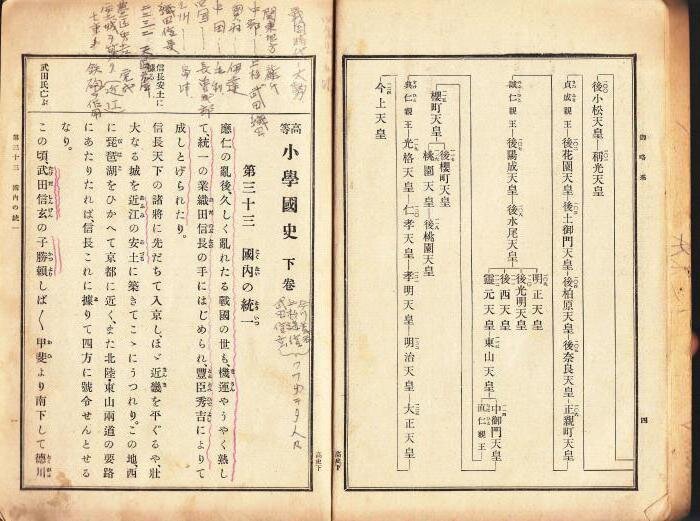 御略系
四
後小松天皇―稱光天皇
貞成親王―後花園天皇―後土御門天皇―後柏原天皇―後奈良天皇―正親町天皇
誠仁親王―後陽成天皇―後水尾天皇
明正天皇
後光明天皇
後西天皇
靈元天皇―東山天皇
中御門天皇
直仁親王
櫻町天皇
後櫻町天皇
桃園天皇―後桃園天皇
典仁親王―光格天皇―仁孝天皇―孝明天皇―明治天皇―大正天皇
今上天皇
高史下
高等小學國史 下卷
第三十三 國内の統一
應仁の亂後、久しく亂れたる戰國の世も、機運やうやく熟し
て、統一の業織田信長の手にはじめられ、豐臣秀吉によりて
成しとげられたり。
信長天下の諸將に先だちて入京し、ほゞ近畿を平ぐるや、壯
大なる城を近江の安土に築きてこゝにうつれり。この地、西
に琵琶湖をひかへて京都に近く、また北陸東山兩道の要路
にあたりたれば、信長これに據りて四方に號令せんとせる
なり。
この頃、武田信玄の子勝頼しば〱甲斐より南下して德川
信長安土に
據る
武田氏亡ぶ
第三十三 國内の統一
一
高史下